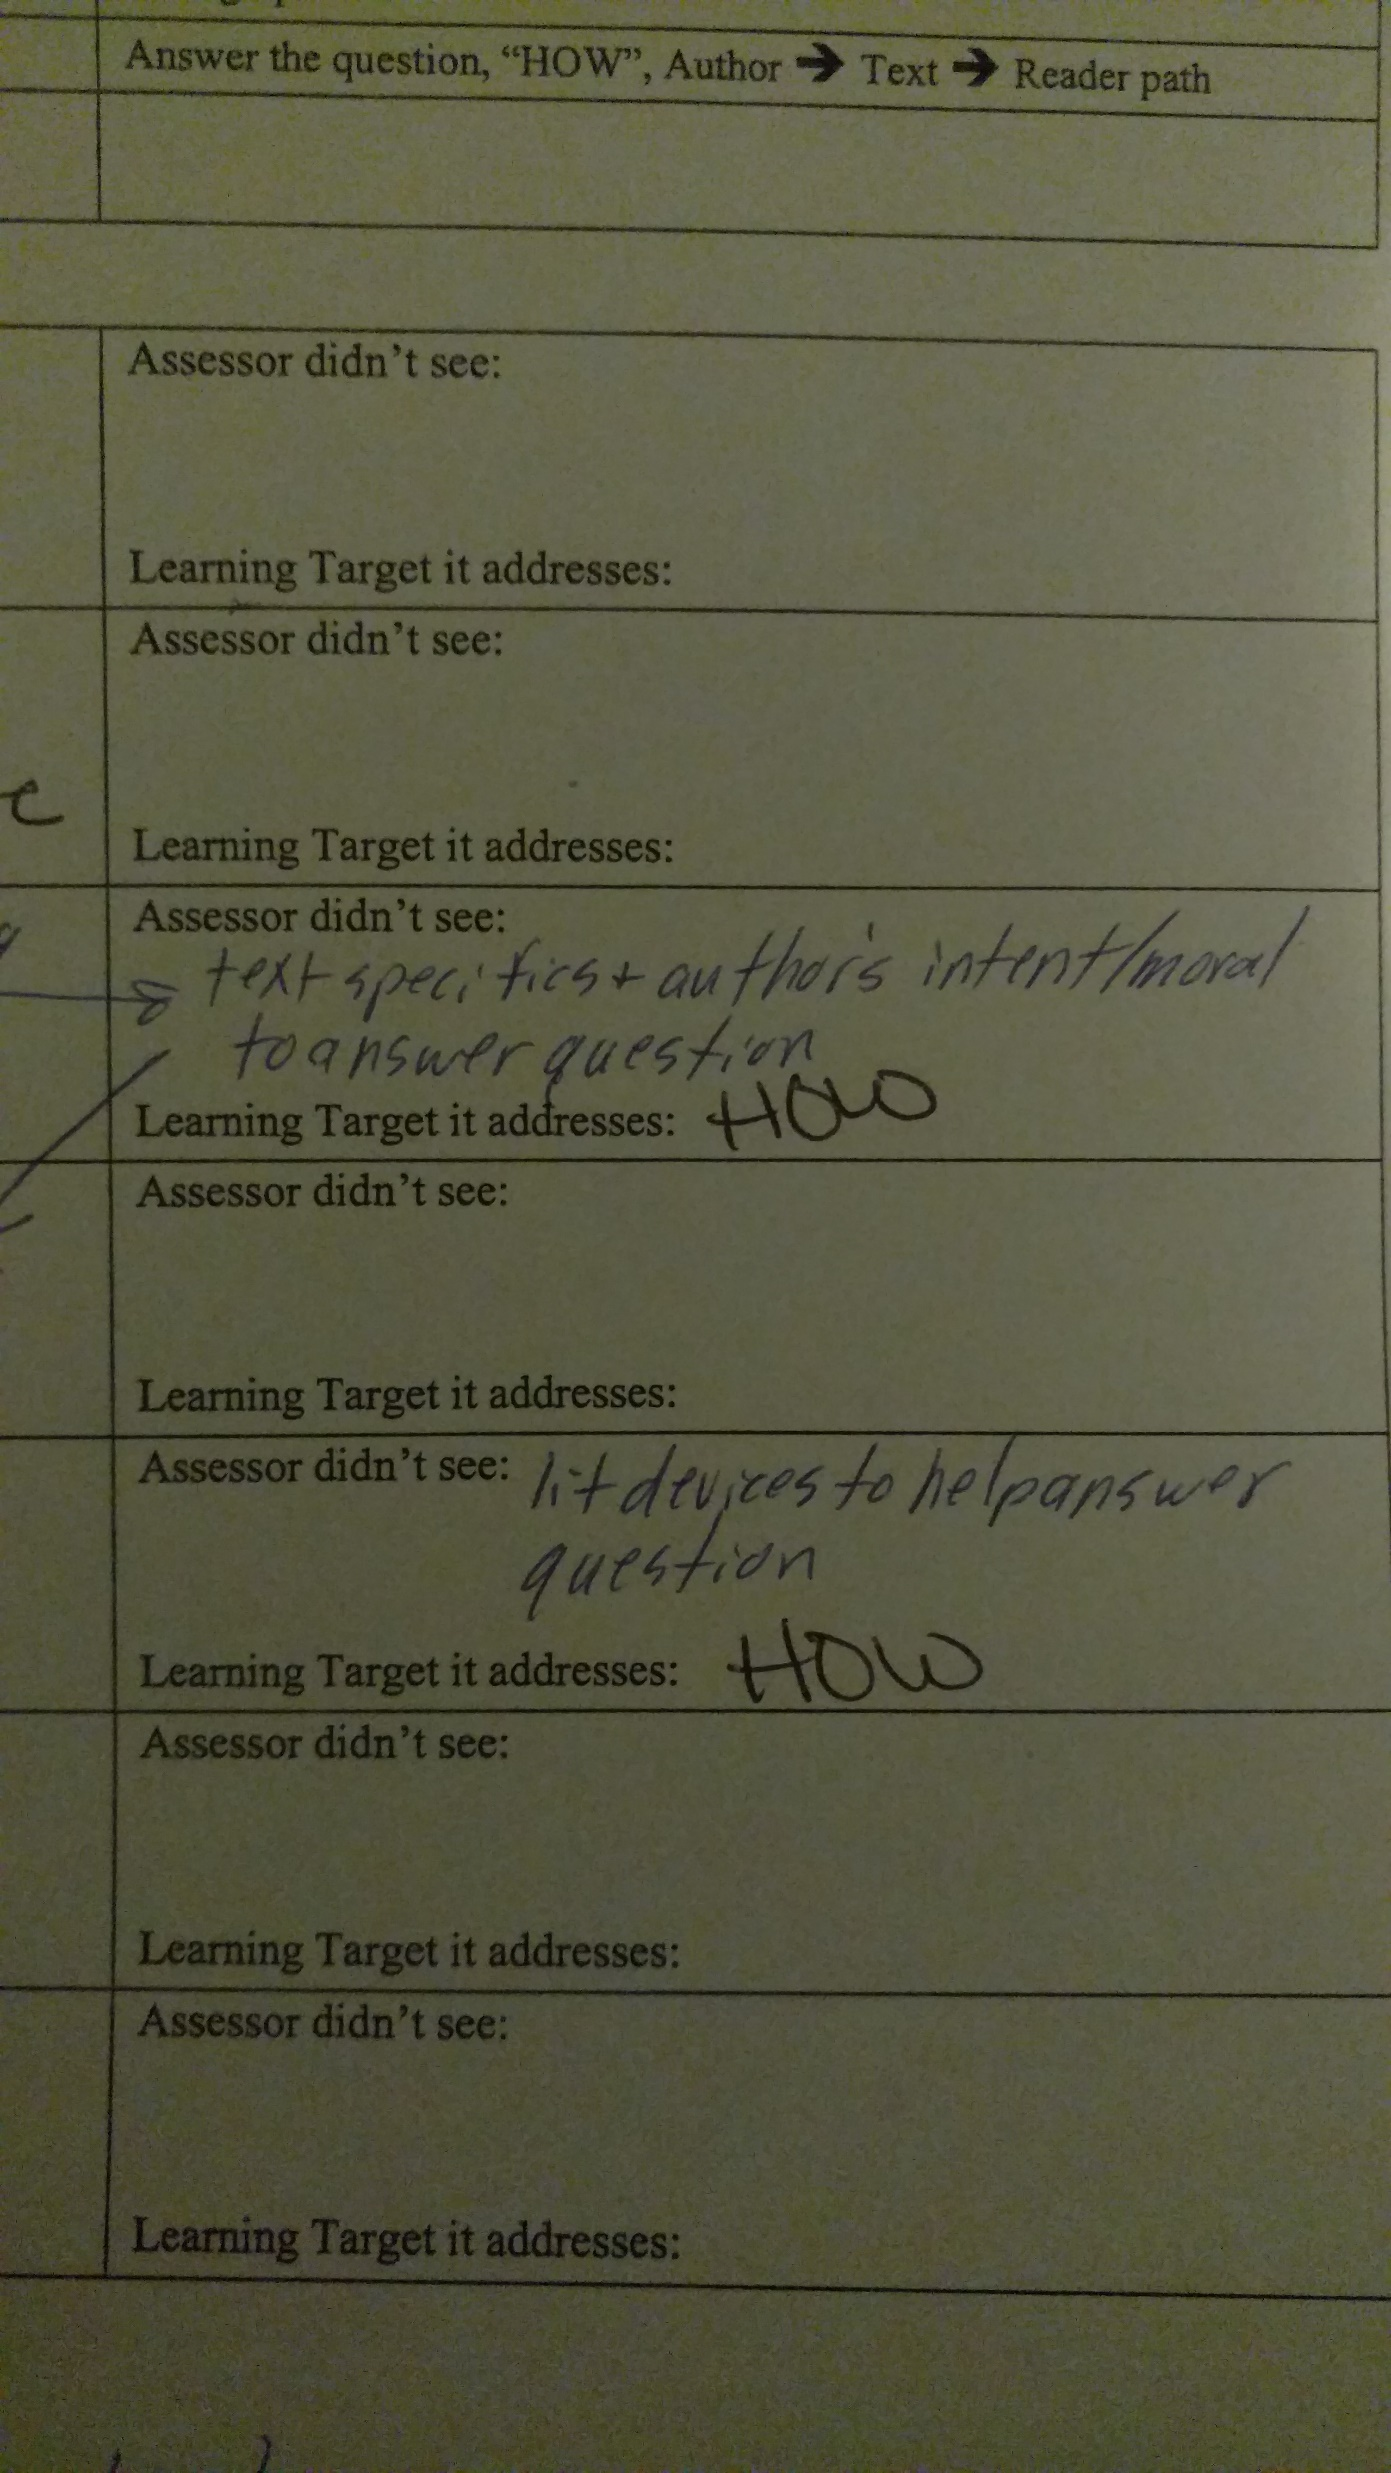 Answer the question, “HOW”, Author ➔ Text ➔ Reader path
Assessor didn’t see:
Learning Target it addresses:
Assessor didn’t see:
Learning Target it addresses:
Assessor didn’t see:
text specifics + author's intent/moral
to answer question
Learning Target it addresses: HOW
Assessor didn’t see:
Learning Target it addresses:
Assessor didn’t see: lit devices to help answer
question
Learning Target it addresses: HOW
Assessor didn’t see:
Learning Target it addresses:
Assessor didn’t see:
Learning Target it addresses: